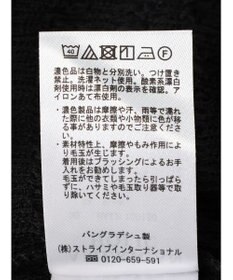 40
F
濃色品は白物と分別洗い。つけ置き
禁止。タンブラー禁止。酸素系漂白
剤使用時は漂白剤の表示を確認。ア
イロンあて布使用。
・濃色製品は摩擦や汗、雨等で濡れ
た際に他の衣類や小物類に色が移
る事がありますのでご注意くださ
い。
・素材特性上、摩擦やもみ作用によ
り毛玉が生じます。
着用後はブラッシングによるお手
入れをお勧めいたします。
毛玉ができてしまったら引っぱら
ずに、ハサミや毛玉取り器等で取
り除いてください。
バングラデシュ製
(株)ストライプインターナショナル
☎ 0120-659-591